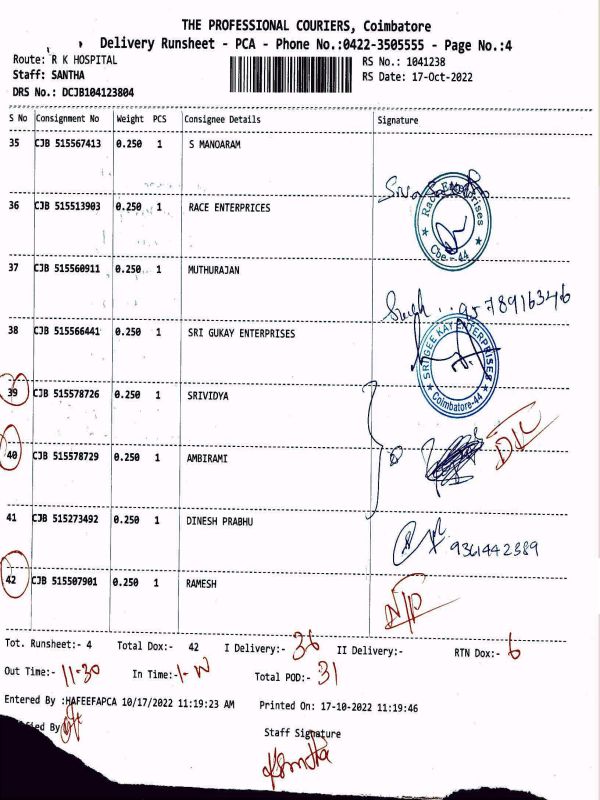 THE PROFESSIONAL COURIERS, Coimbatore
Delivery Runsheet - PCA - Phone No.:0422-3505555 - Page No.:4
Route: R K HOSPITAL RS No.: 1041238
Staff: SANTHA RS Date: 17-Oct-2022
DRS No.: DCJB104123804
S No Consignment No Weight PCS Consignee Details Signature
35 CJB 515567413 0.250 1 S MANOARAM
36 CJB 515513903 0.250 1 RACE ENTERPRICES
Race Enterprises
Cbe - 44
37 CJB 515560911 0.250 1 MUTHURAJAN
9578916346
38 CJB 515566441 0.250 1 SRI GUKAY ENTERPRISES
SRI GEE KAY ENTERPRISES
Coimbatore-44
39 CJB 515578726 0.250 1 SRIVIDYA
40 CJB 515578729 0.250 1 AMBIRAMI
D/L
41 CJB 515273492 0.250 1 DINESH PRABHU
9361442389
42 CJB 515507901 0.250 1 RAMESH
N/P
Tot. Runsheet:- 4 Total Dox:- 42 I Delivery:- 36 II Delivery:- RTN Dox:- 6
Out Time:- 11-30 In Time:- Total POD:- 31
Entered By :HAFEEFAPCA 10/17/2022 11:19:23 AM Printed On: 17-10-2022 11:19:46
ied By Staff Signature